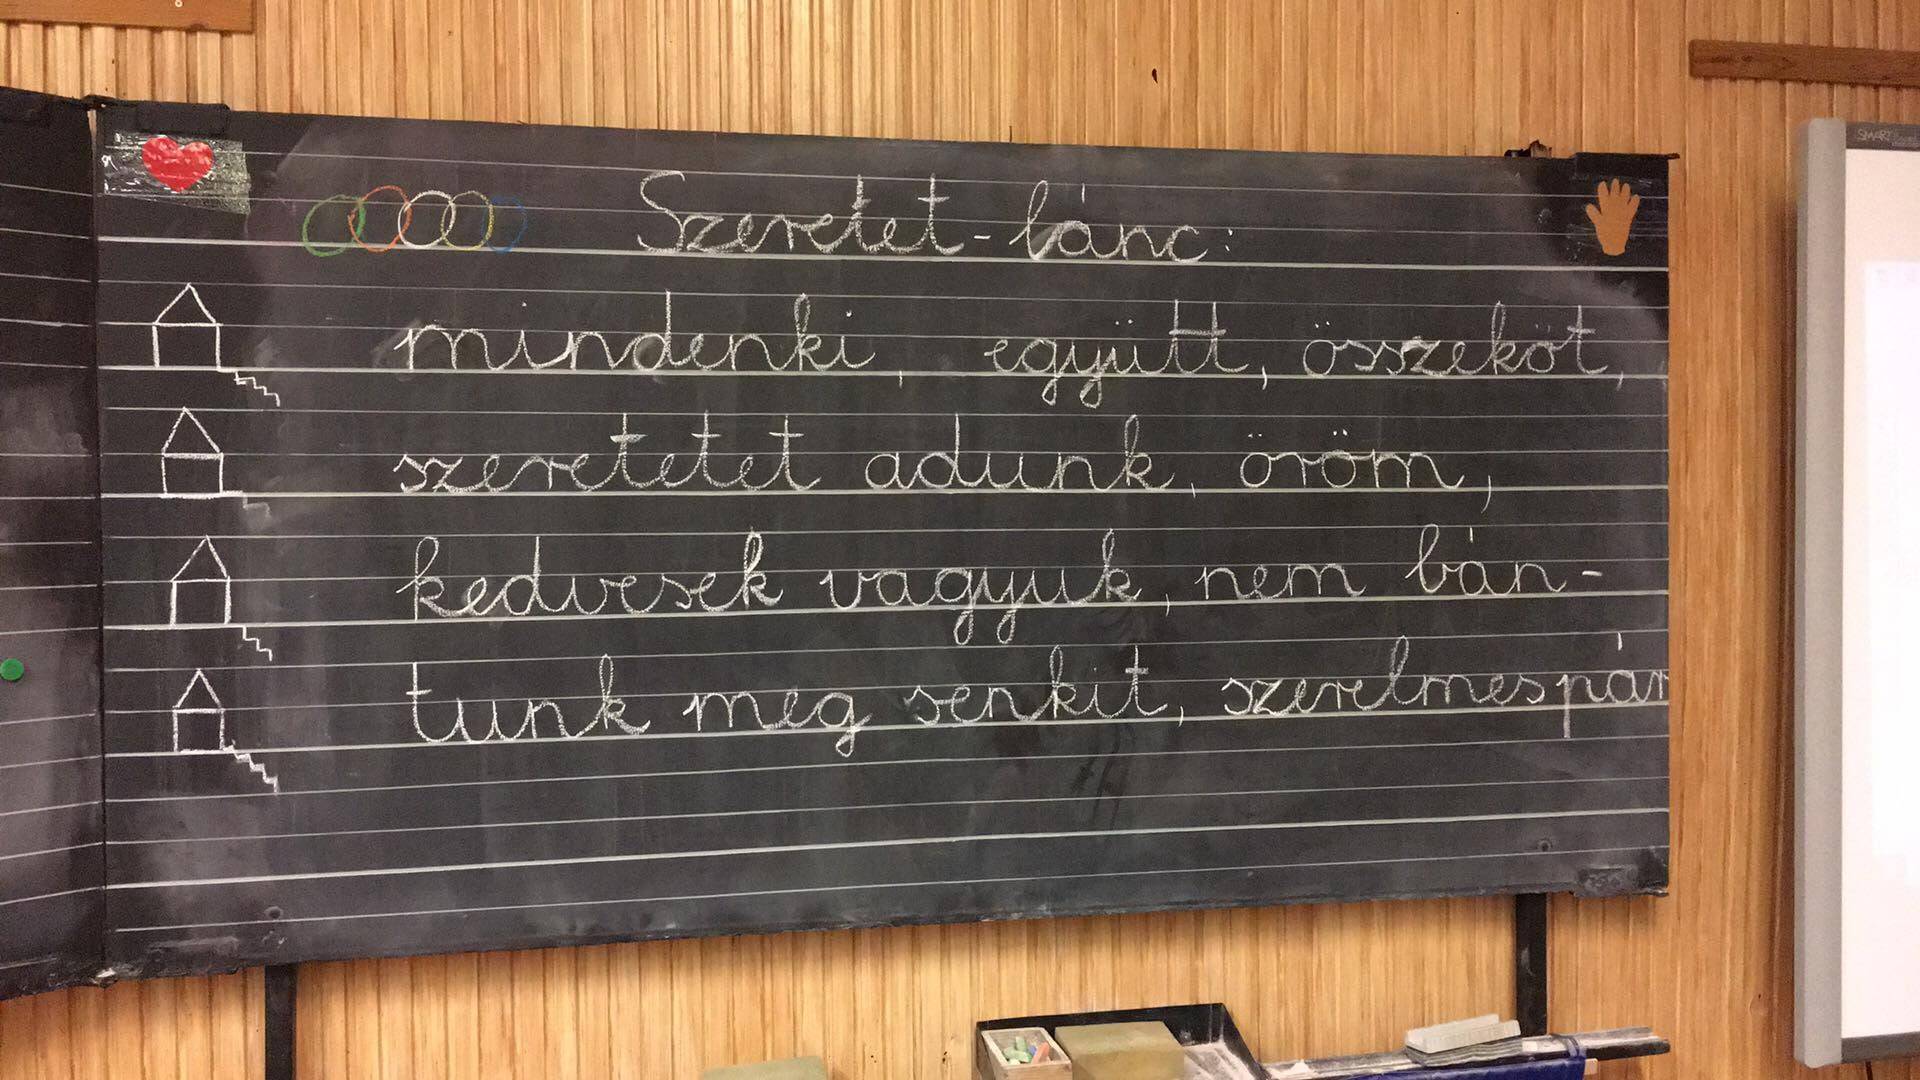 Szeretet-lánc:
mindenki, együtt, összeköt,
szeretetet adunk, öröm,
kedvesek vagyuk, nem bán-
tunk meg senkit, szerelmespár
SMART